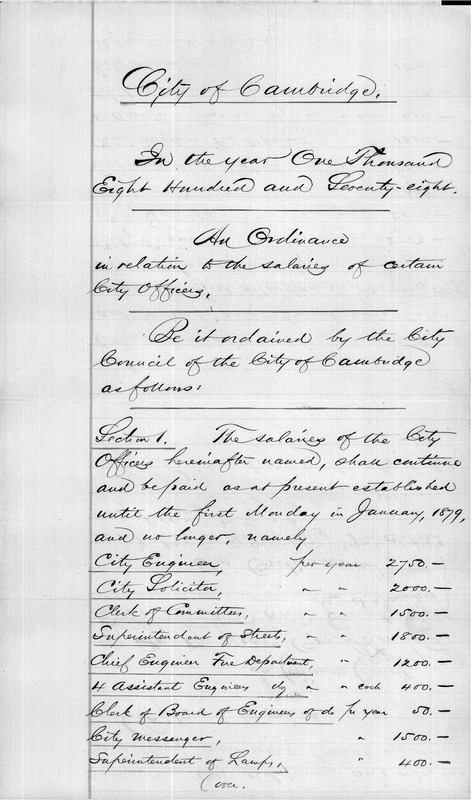 City of Cambridge.
In the year One Thousand
Eight Hundred and Seventy-eight.
An Ordinance
in relation to the salaries of certain
City Officers.
Be it ordained by the City
Council of the City of Cambridge
as follows:
Section 1. The salaries of the City
Officers hereinafter named, shall continue
and be paid as at present established
until the first Monday in January, 1879,
and no longer, namely
City Engineer, per year 2750.—
City Solicitor, " " 2000.—
Clerk of Committees, " " 1500.—
Superintendent of Streets, " 1800.—
Chief Engineer Fire Department, " 1200.—
4 Assistant Engineers do " " each 400.—
Clerk of Board of Engineers of do per year 50.—
City Messenger, " 1500.—
Superintendent of Lamps, " 400.—
(over.